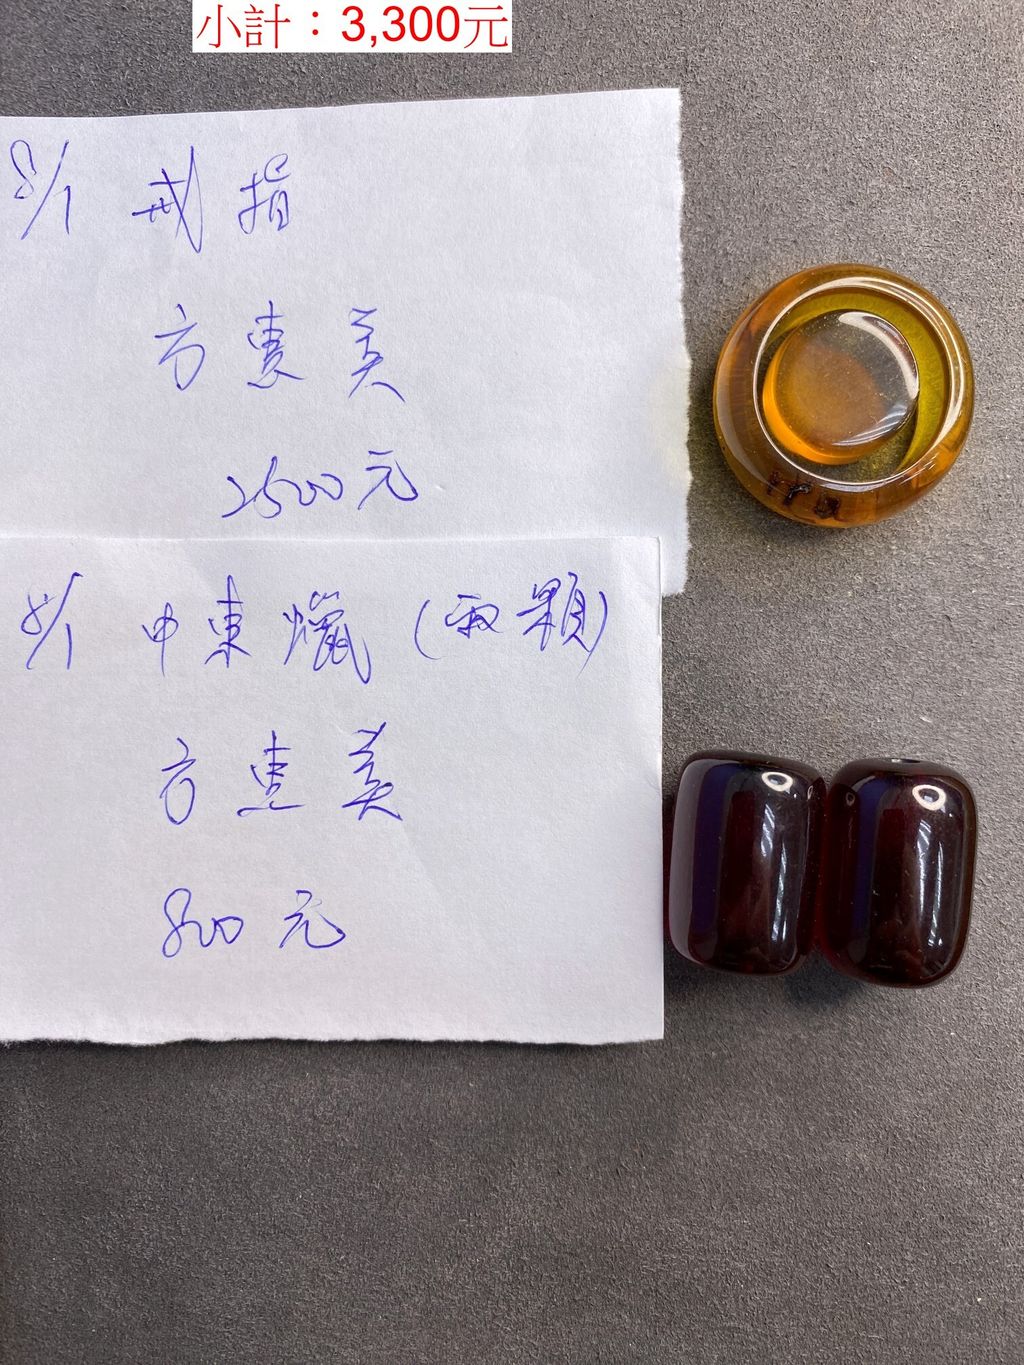 小計：3,300元
8/1 戒指
方惠美
2500元
8/1 中東蠟(兩顆)
方惠美
800元